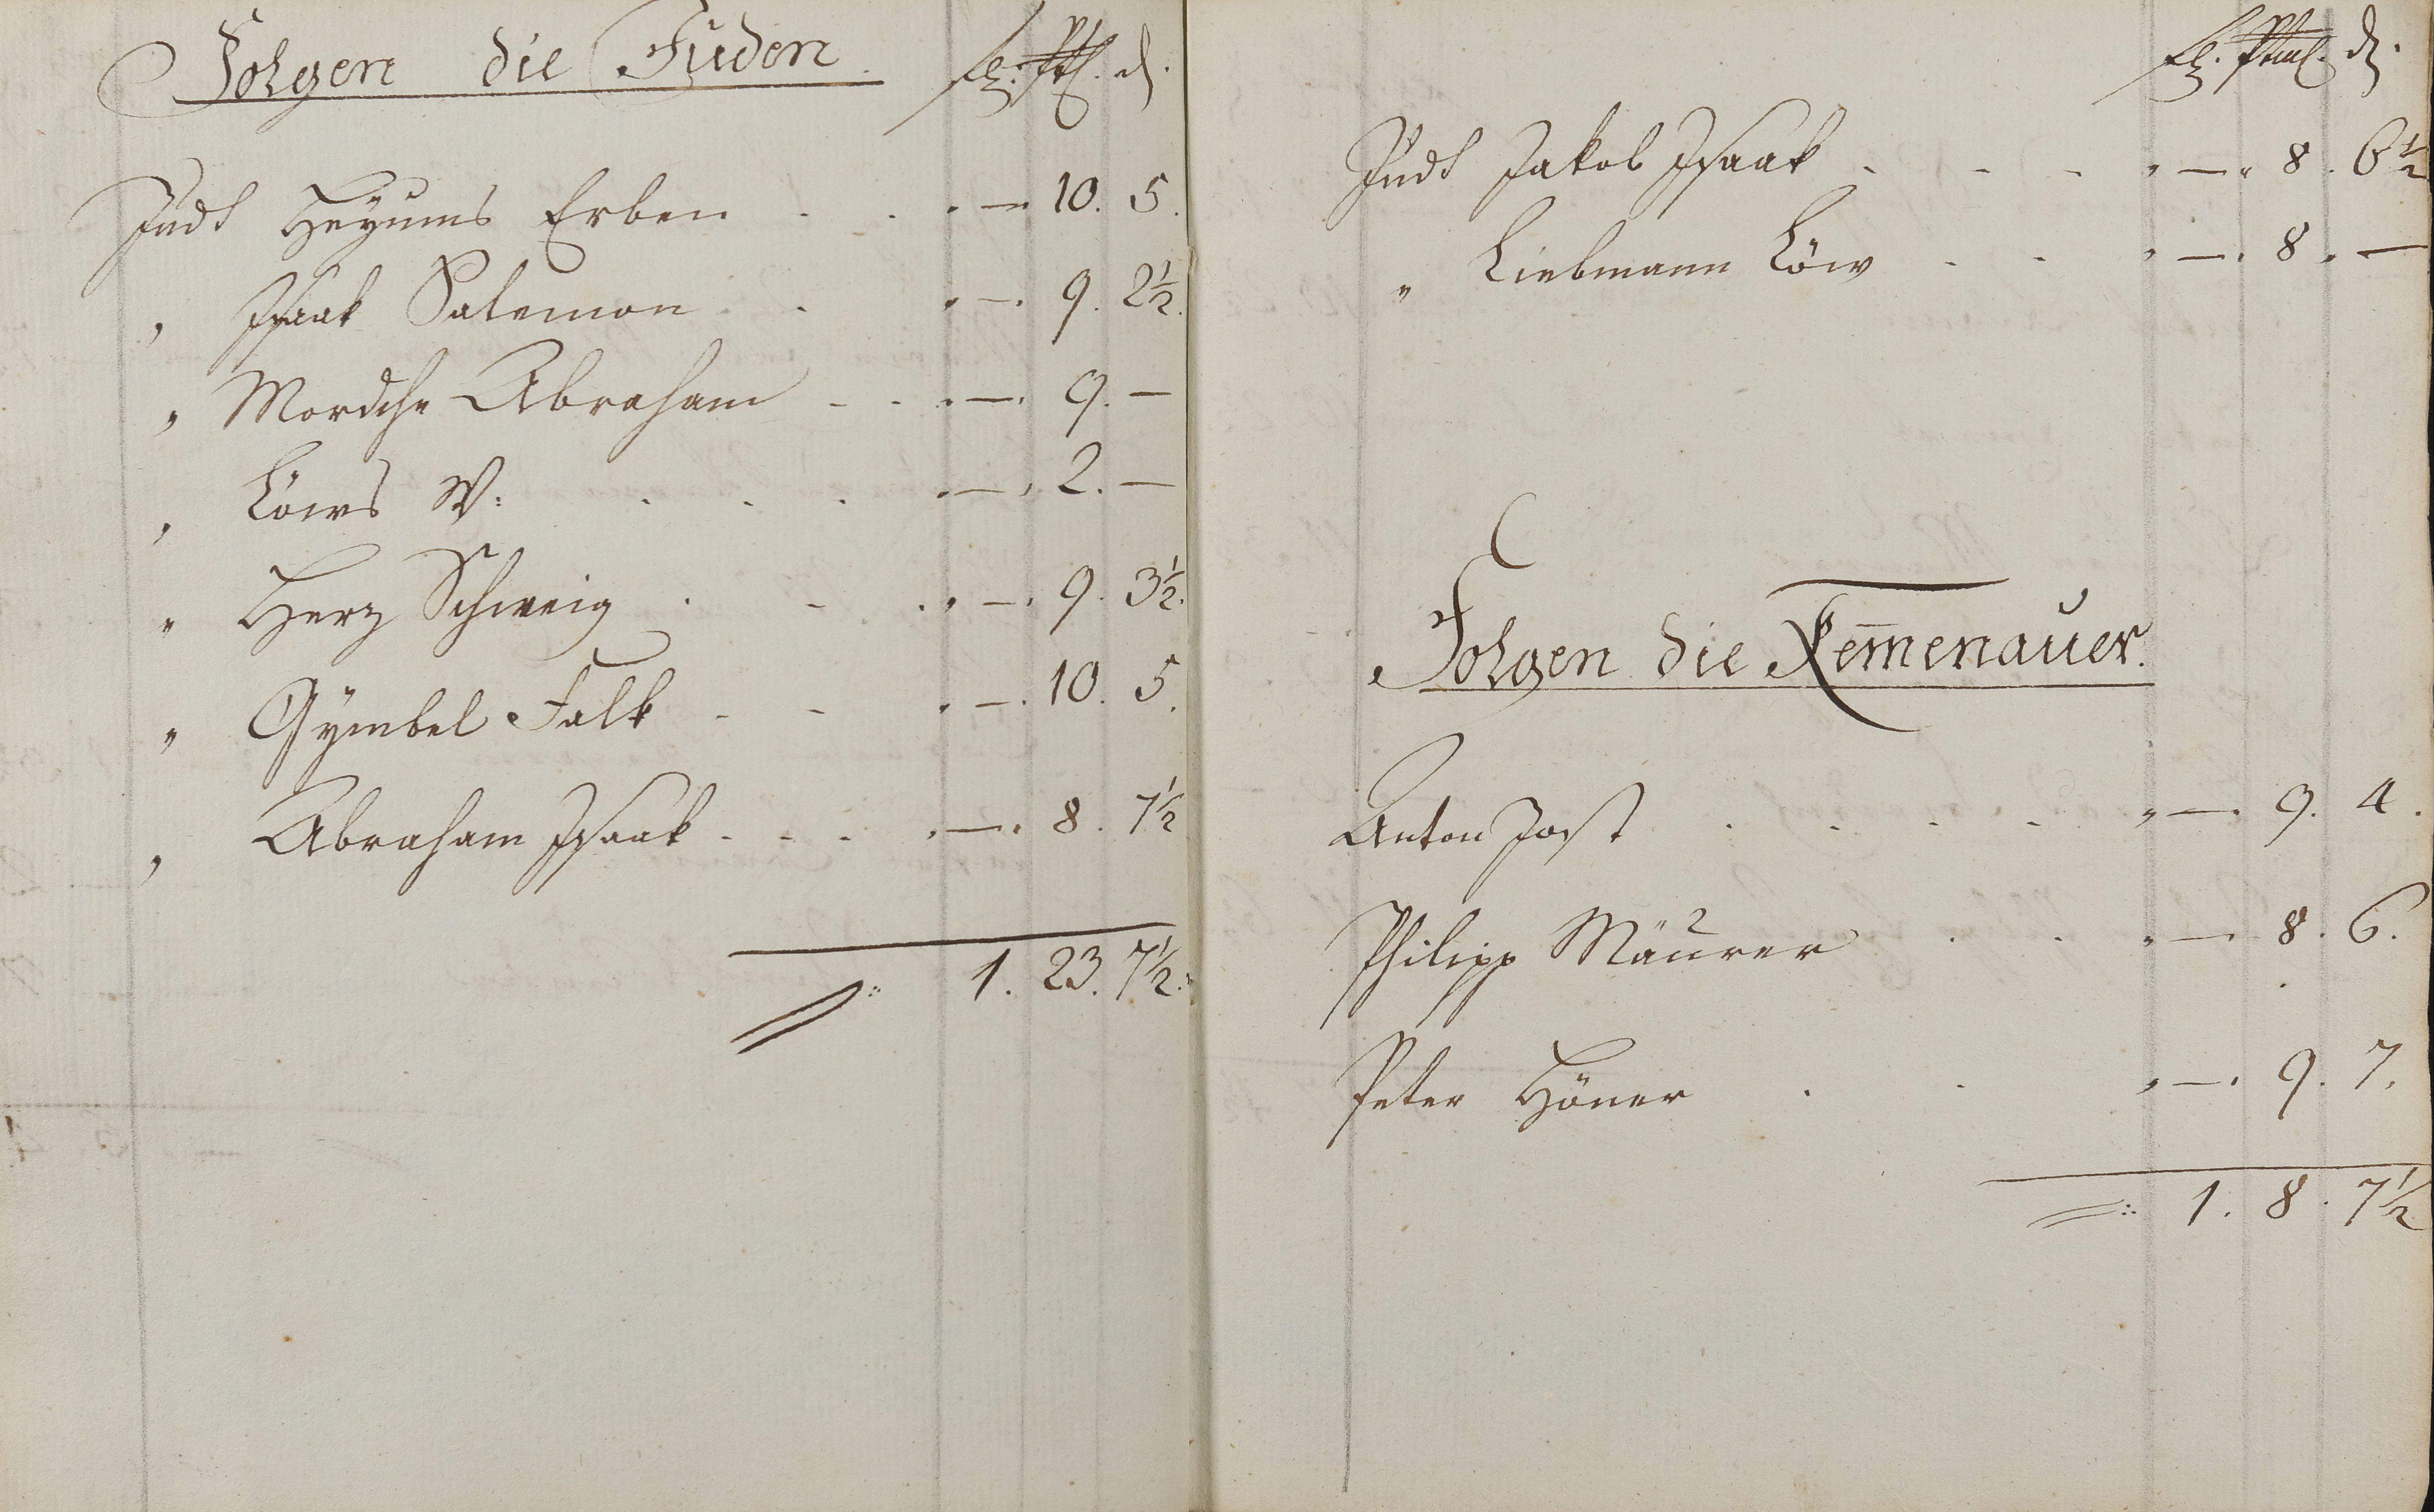 Folgen die Juden. fl. Ptl. d.
Judt Heyums Erben . . . — 10. 5.
„ Isaak Salemon . . — . 9. 2½.
„ Mordche Abraham - - . — . 9. —
„ Löws W: . . . . — . 2. —
„ Herz Schweig . - . . — . 9. 3½.
„ Gymbel Falk - - . — . 10. 5.
„ Abraham Isaak - - - . — . 8. 7½
1. 23. 7½.
fl. Ptml. d.
Judt Jakob Isaak - - - . — . 8. 6½
„ Liebmann Löw - - . — . 8. —
Folgen die Kem̄enauer.
Anton Jost . . - - „ — . 9. 4.
Philipp Mäurer . . „ — . 8. 6.
Peter Höner . . „ — . 9. 7.
1. 8. 7½